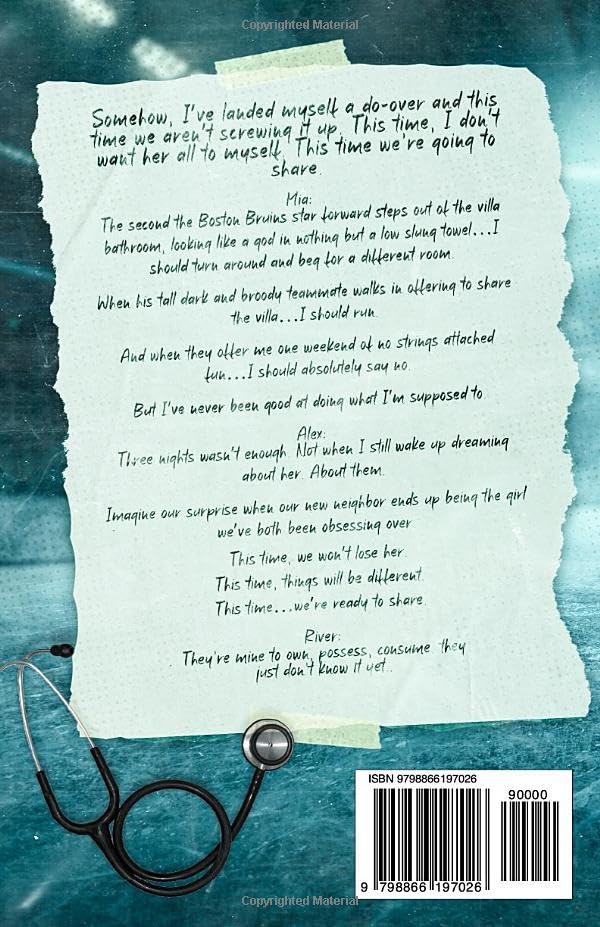 Copyrighted Material
Somehow, I've landed myself a do-over and this
time we aren't screwing it up. This time, I don't
want her all to myself. This time we're going to
share.
Mia:
The second the Boston Bruins star forward steps out of the villa
bathroom, looking like a god in nothing but a low slung towel...I
should turn around and beg for a different room.
When his tall dark and broody teammate walks in offering to share
the villa...I should run.
And when they offer me one weekend of no strings attached
fun...I should absolutely say no.
But I've never been good at doing what I'm supposed to.
Alex:
Three nights wasn't enough. Not when I still wake up dreaming
about her. About them.
Imagine our surprise when our new neighbor ends up being the girl
we've both been obsessing over
This time, we won't lose her.
This time, things will be different.
This time...we're ready to share.
River:
They're mine to own, possess, consume they
just don't know it yet...
ISBN 9798866197026
90000
9 798866 197026
Copyrighted Material